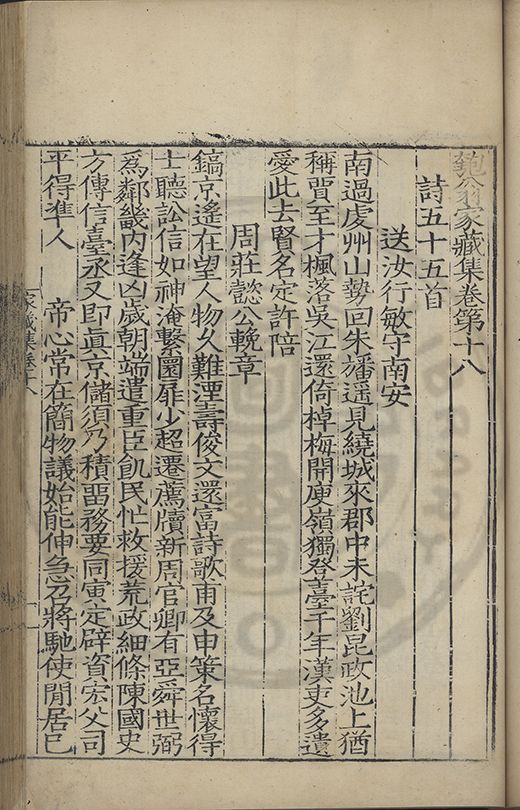 匏翁家藏集卷第十八
詩五十五首
送汝行敏守南安
南過虔州山勢回朱旛遥見繞城來郡中未詫劉昆政池上猶
稱賈至才楓落吳江還倚棹梅開庾嶺獨登臺千年漢吏多遺
愛此去賢名定許陪
周莊懿公輓章
鎬京遙在望人物久難湮壽俊文還富詩歌甫及申策名懷得
士聽訟信如神淹繫圜扉少超遷薦牘新周官卿有亞舜世弼
爲鄰畿內逢凶歲朝端遣重臣飢民忙救援荒政細條陳國史
方傳信臺丞又即真京儲須乃積畱務要同寅定辟資宏父司
平得準人　帝心常在簡物議始能伸急召將馳使閒居已
家藏集卷十八